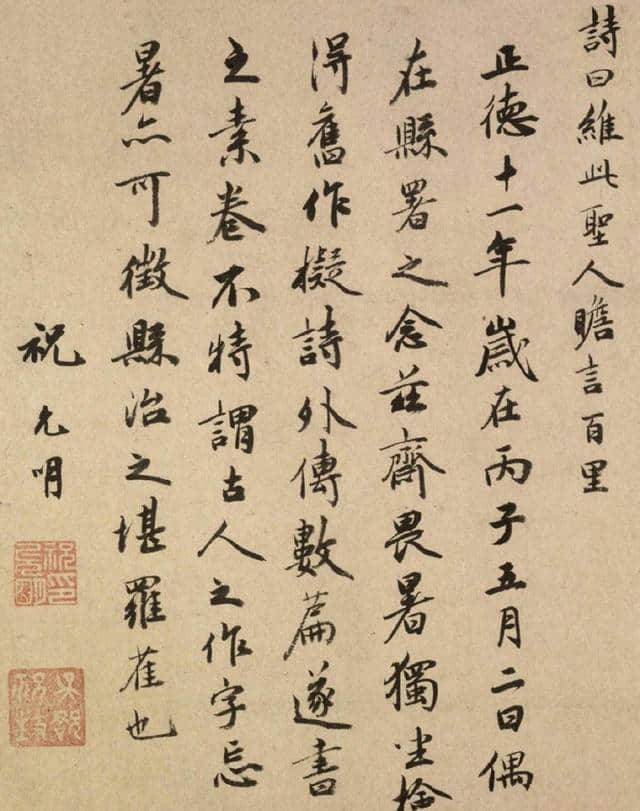 詩曰維此聖人瞻言百里
正德十一年歲在丙子五月二日偶
在縣署之念莊齋畏暑獨坐撿
得舊作擬詩外傳數篇遂書
之素卷不特謂古人之作字忘
暑亦可徵縣治之堪羅雀也
祝允明